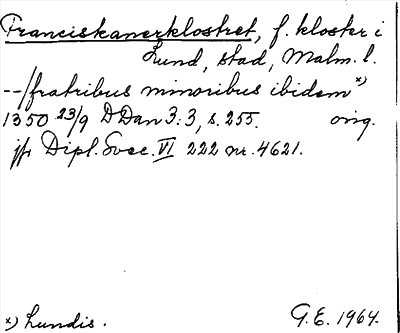 Franciskanerklostret, f. kloster i
Lund, stad, Malm. l.
--/fratribus minoribus ibidem x)
1350 23/9 DDan 3:3, s. 255. orig.
jfr Dipl. Svec. VI 222 nr. 4621.
x) Lundis. G.E. 1964.